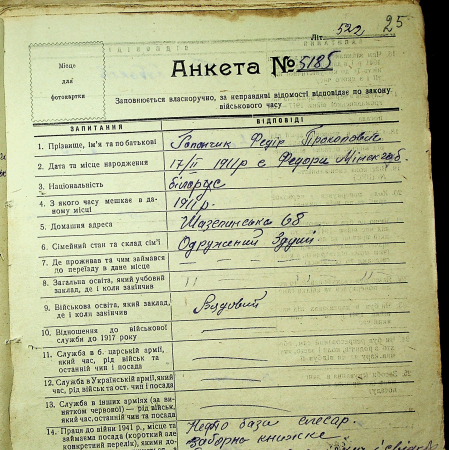 Літ. 522 25
Місце
для
фотокартки
Анкета № 5185
Заповнюється власноручно, за неправдиві відомості відповідає по закону
військового часу
ЗАПИТАННЯ ВІДПОВІДІ
1. Прізвище, ім'я та по батькові Гапанчик Федір Прокопович
2. Дата та місце народження 17/II 1911р с Федори Мінск
3. Національність білорус
4. З якого часу мешкає в да-
ному місці 1911р.
5. Домашня адреса 68
6. Сімейний стан та склад сім'ї Одружений
7. Де проживав та чим займався
до переїзду в дане місце
8. Загальна освіта, який учбовий
заклад, де і коли закінчив
9. Військова освіта, який заклад,
де і коли закінчив Рядовий
10. Відношення до військової
служби до 1917 року
11. Служба в б. царській армії,
який час, рід військ та
останній чин і посада
12. Служба в Українській армії, який
час, рід військ та ост. чин і посада
13. Служба в інших арміях (за ви-
нятком червоної) — рід військ,
який час, останній чин та посада
14. Праця до війни 1941 р., місце та
займаєма посада (короткий але
конкретний перелік), якими до- Нефто база слесар.
книжке